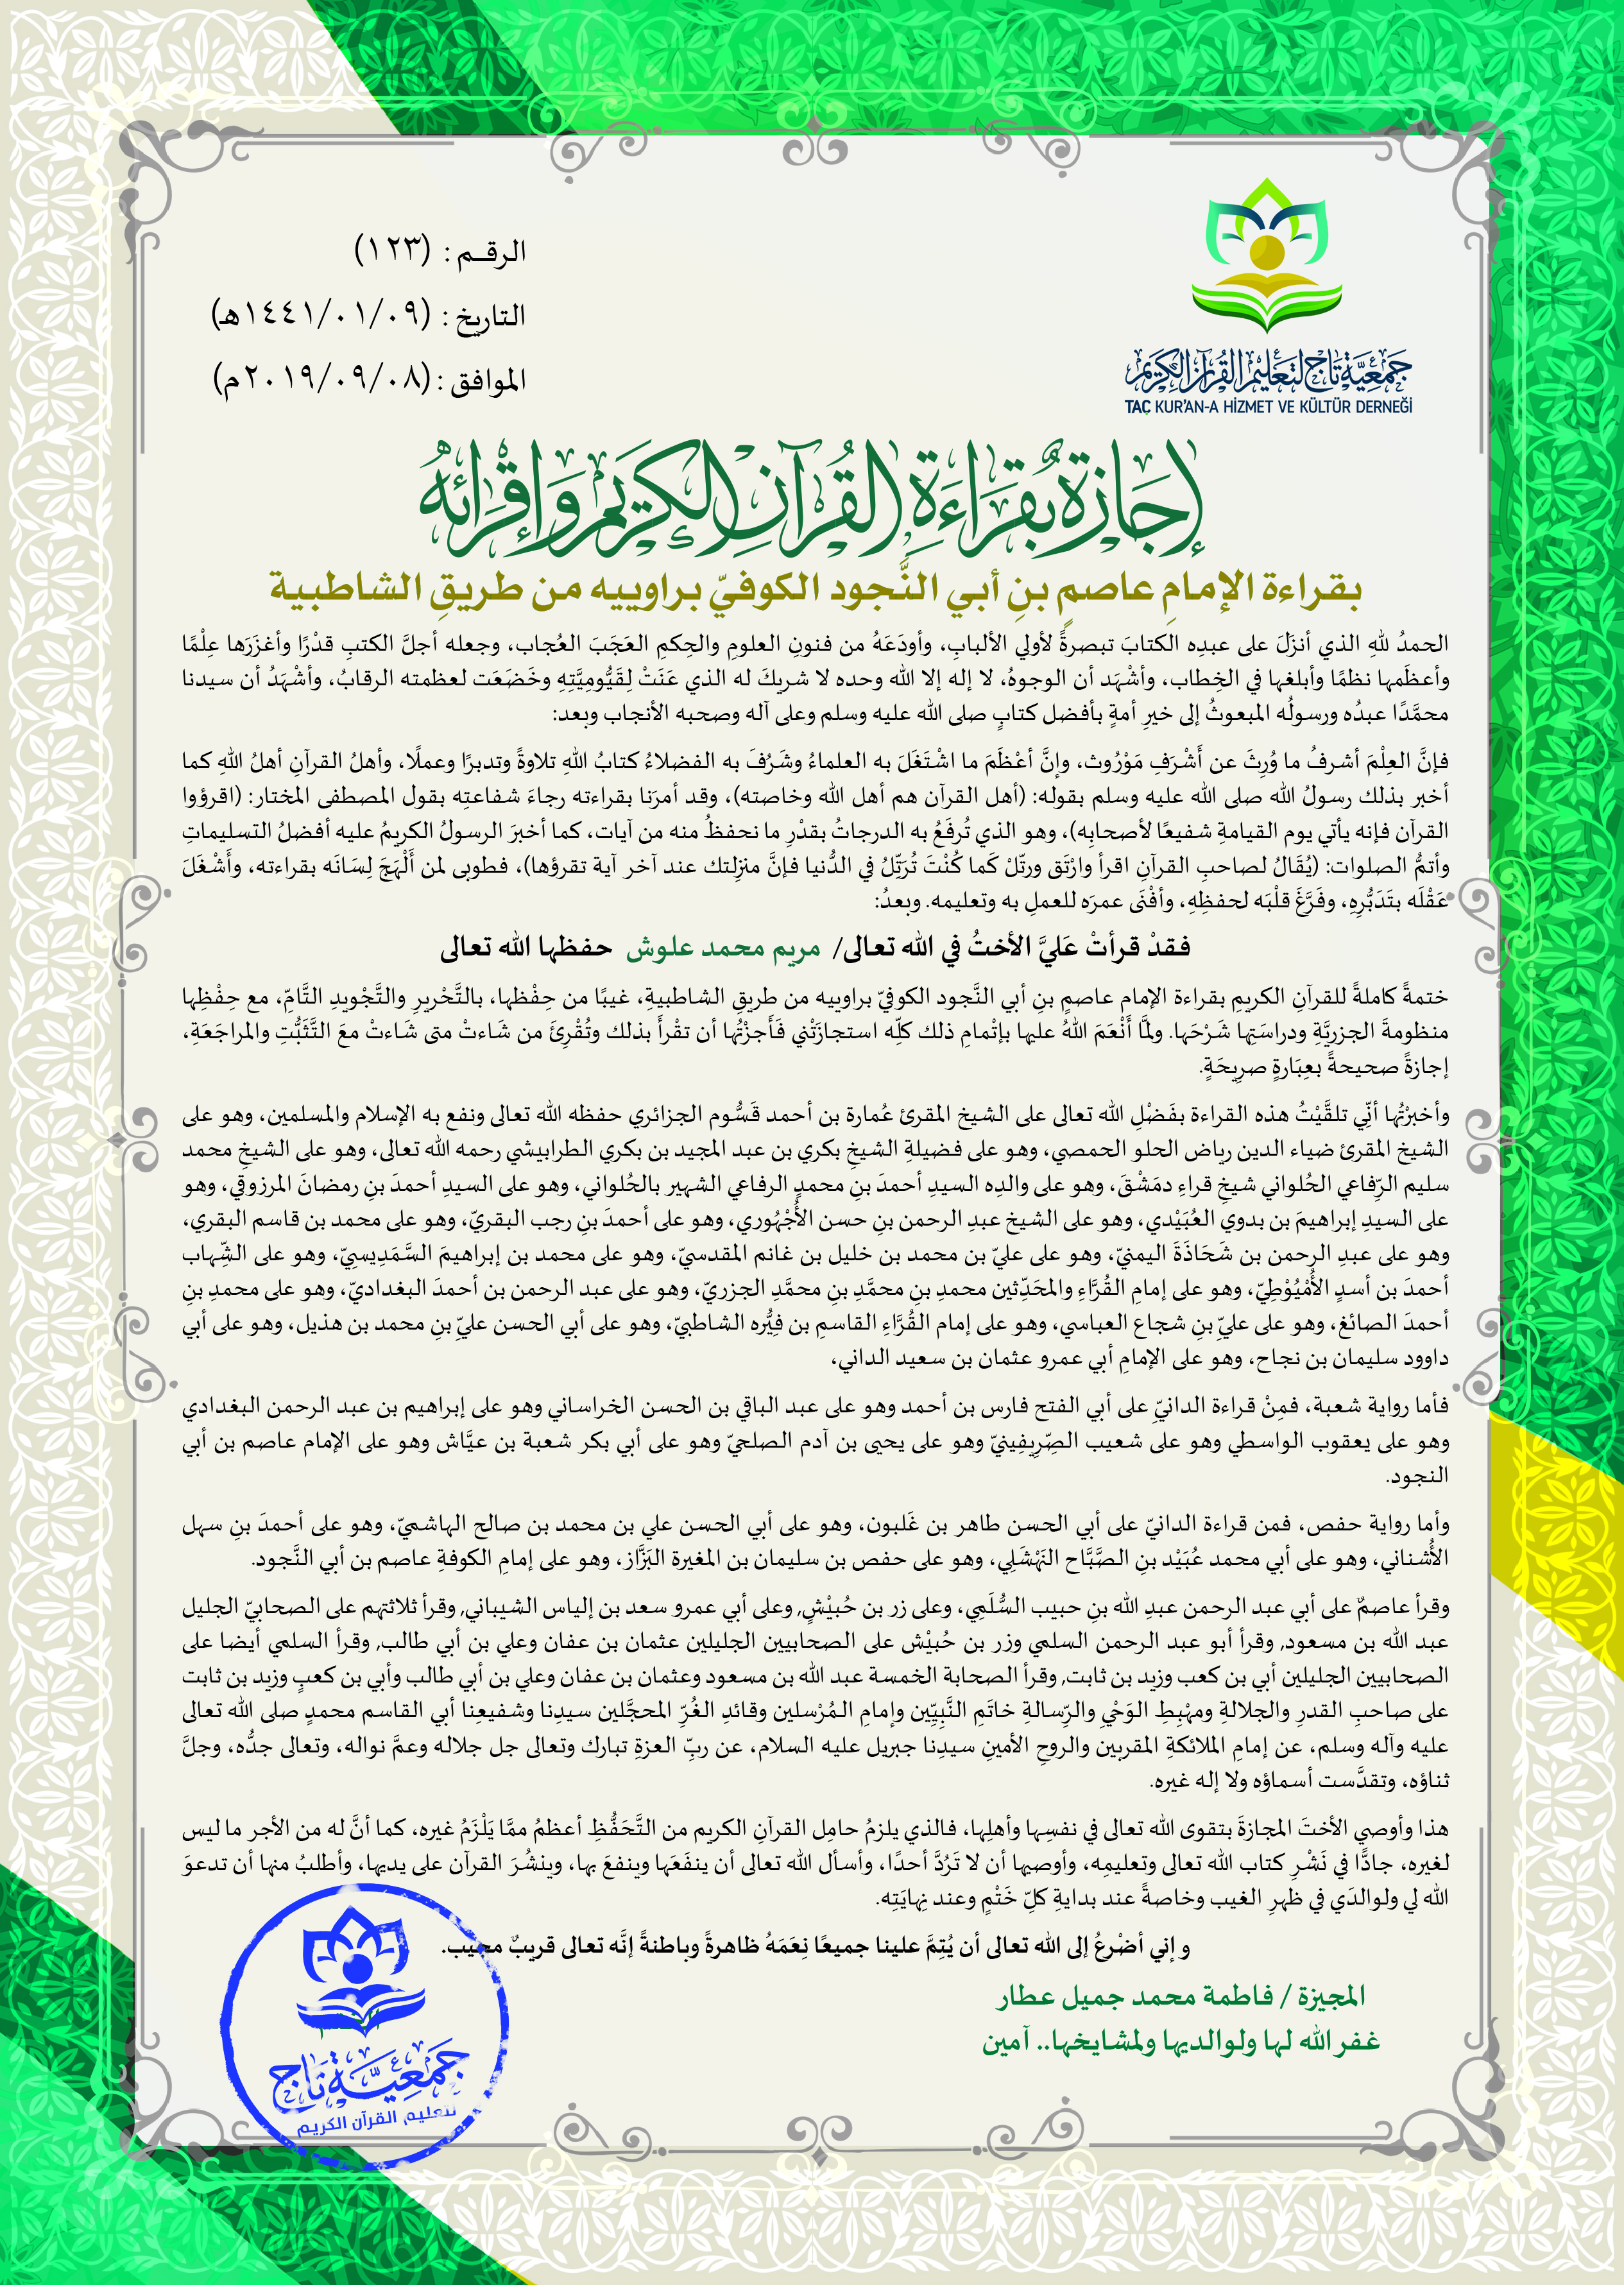 جمعية تاج لتعليم القرآن الكريم
TAÇ KUR'AN-A HİZMET VE KÜLTÜR DERNEĞİ
الرقـم : (١٢٣)
التاريخ : (١٤٤١/٠١/٠٩هـ)
الموافق : (٢٠١٩/٠٩/٠٨م)
إجازة بقراءة القرآن الكريم وإقرائه
بقراءة الإمامِ عاصمِ بنِ أبي النَّجود الكوفيّ براوييه من طريقِ الشاطبية
الحمدُ للهِ الذي أنزَلَ على عبدِه الكتابَ تبصرةً لأولي الألبابِ، وأودَعَهُ من فنونِ العلومِ والحِكمِ العَجَبَ العُجاب، وجعله أجلَّ الكتبِ قدْرًا وأغزَرَها عِلْمًا
وأعظَمِها نظمًا وأبلغِها في الخِطاب، وأشْهَد أن الوجوهُ، لا إله إلا الله وحده لا شريكَ له الذي عَنَتْ لِقَيُّومِيَّتِهِ وخَضَعَت لعظمته الرقابُ، وأشْهَدُ أن سيدنا
محمَّدًا عبدُه ورسولُه المبعوثُ إلى خيرِ أمةٍ بأفضل كتابٍ صلى الله عليه وسلم وعلى آله وصحبه الأنجاب وبعد:
فإنَّ العِلْمَ أشرفُ ما وُرِثَ عن أَشْرَفِ مَوْرُوث، وإنَّ أعْظَمَ ما اشْتَغَلَ به العلماءُ وشَرُفَ به الفضلاءُ كتابُ اللهِ تلاوةً وتدبرًا وعملًا، وأهلُ القرآنِ أهلُ اللهِ كما
أخبر بذلك رسولُ الله صلى الله عليه وسلم بقوله: (أهل القرآن هم أهل الله وخاصته)، وقد أمرَنا بقراءته رجاءَ شفاعتِه بقول المصطفى المختار: (اقرؤوا
القرآن فإنه يأتي يوم القيامةِ شفيعًا لأصحابِه)، وهو الذي تُرفَعُ به الدرجاتُ بقدْرِ ما نحفظُ منه من آيات، كما أخبرَ الرسولُ الكريمُ عليه أفضلُ التسليماتِ
وأتمُّ الصلوات: (يُقَالُ لصاحبِ القرآنِ اقرأ وارْتَق ورتّلْ كَما كُنْتَ تُرَتِّلُ في الدُّنيا فإنَّ منْزِلتك عند آخر آية تقرؤها)، فطوبى لمن أَلْهَجَ لِسَانَه بقراءته، وأَشْغَلَ
عَقْلَه بتَدَبُّرِهِ، وفَرَّغَ قلْبَه لحفظِهِ، وأفْنَى عمرَه للعملِ به وتعليمه. وبعدُ:
فقدْ قرأتْ عَليَّ الأختُ في الله تعالى/ مريم محمد علوش حفظها الله تعالى
ختمةً كاملةً للقرآنِ الكريمِ بقراءة الإمام عاصمِ بنِ أبي النَّجود الكوفيّ براوييه من طريقِ الشاطبيةِ، غيبًا من حِفْظها، بالتَّحْريرِ والتَّجْويدِ التَّامِّ، مع حِفْظِها
منظومةَ الجزريَّةِ ودراسَتِها شَرْحَها. ولمَّا أَنْعَمَ اللهُ عليها بإتْمامِ ذلك كلِّه استجازَتْني فَأَجزْتُها أن تقْرأَ بذلك وتُقْرِئَ من شَاءتْ متى شَاءتْ معَ التَّثَبُّتِ والمراجَعَةِ،
إجازةً صحيحةً بعِبَارةٍ صرِيحَةٍ.
وأخبرْتُها أنّي تلقَّيْتُ هذه القراءة بفَضْلِ الله تعالى على الشيخ المقرئ عُمارة بن أحمد قَسُّوم الجزائري حفظه الله تعالى ونفع به الإسلام والمسلمين، وهو على
الشيخ المقرئ ضياء الدين رياض الحلو الحمصي، وهو على فضيلةِ الشيخِ بكري بن عبد المجيد بن بكري الطرابيشي رحمه الله تعالى، وهو على الشيخِ محمد
سليم الرِّفاعي الحُلواني شيخِ قراءِ دمَشْقَ، وهو على والدِه السيدِ أحمدَ بنِ محمدٍ الرفاعي الشهير بالحُلواني، وهو على السيدِ أحمدَ بنِ رمضانَ المرزوقي، وهو
على السيدِ إبراهيمَ بن بدوي العُبَيْدي، وهو على الشيخ عبدِ الرحمن بنِ حسن الأُجْهُوري، وهو على أحمدَ بنِ رجب البقريّ، وهو على محمد بن قاسم البقري،
وهو على عبدِ الرحمن بن شَحَاذَةَ اليمنيّ، وهو على عليّ بن محمد بن خليل بن غانم المقدسيّ، وهو على محمد بن إبراهيمَ السَّمَدِيسِيّ، وهو على الشِّهاب
أحمدَ بن أسدٍ الأُمْيُوْطِيّ، وهو على إمامِ القُرَّاءِ والمحَدِّثين محمدِ بنِ محمَّدِ بنِ محمَّدِ الجزريّ، وهو على عبد الرحمن بن أحمدَ البغداديّ، وهو على محمدِ بنِ
أحمدَ الصائغ، وهو على عليِّ بنِ شجاع العباسي، وهو على إمام القُرَّاءِ القاسمِ بن فِيُّره الشاطبيّ، وهو على أبي الحسن عليِّ بنِ محمد بن هذيل، وهو على أبي
داوود سليمان بن نجاح، وهو على الإمامِ أبي عمرو عثمان بن سعيد الداني،
فأما رواية شعبة، فمِنْ قراءة الدانيِّ على أبي الفتح فارس بن أحمد وهو على عبد الباقي بن الحسن الخراساني وهو على إبراهيم بن عبد الرحمن البغدادي
وهو على يعقوب الواسطي وهو على شعيب الصِّرِيفِينيّ وهو على يحيى بن آدم الصلحيّ وهو على أبي بكر شعبة بن عيَّاش وهو على الإمام عاصم بن أبي
النجود.
وأما رواية حفص، فمن قراءة الدانيّ على أبي الحسن طاهر بن غَلبون، وهو على أبي الحسن علي بن محمد بن صالح الهاشميّ، وهو على أحمدَ بنِ سهل
الأُشناني، وهو على أبي محمد عُبَيْد بنِ الصَّبَّاح النَهْشَلِي، وهو على حفص بن سليمان بن المغيرة البَزَّاز، وهو على إمامِ الكوفةِ عاصم بن أبي النَّجود.
وقرأ عاصمٌ على أبي عبد الرحمن عبدِ الله بنِ حبيب السُّلَمِي، وعلى زر بن حُبيْشٍ, وعلى أبي عمرو سعد بن إلياس الشيباني, وقرأ ثلاثتهم على الصحابيّ الجليل
عبد الله بن مسعود, وقرأ أبو عبد الرحمن السلمي وزر بن حُبيْش على الصحابيين الجليلين عثمان بن عفان وعلي بن أبي طالب, وقرأ السلمي أيضا على
الصحابيين الجليلين أبي بن كعب وزيد بن ثابت, وقرأ الصحابة الخمسة عبد الله بن مسعود وعثمان بن عفان وعلي بن أبي طالب وأبي بن كعبٍ وزيد بن ثابت
على صاحبِ القدرِ والجلالةِ ومهْبِطِ الوَحْيِ والرِّسالةِ خاتَمِ النَّبِيِّين وإمامِ المُرْسلين وقائدِ الغُرِّ المحجَّلين سيدِنا وشفيعِنا أبي القاسم محمدٍ صلى الله تعالى
عليه وآله وسلم، عن إمامِ الملائكةِ المقربين والروحِ الأمينِ سيدِنا جبريل عليه السلام، عن ربِّ العزةِ تبارك وتعالى جل جلاله وعمَّ نواله، وتعالى جدُّه، وجلَّ
ثناؤه، وتقدَّست أسماؤه ولا إله غيره.
هذا وأوصي الأختَ المجازةَ بتقوى الله تعالى في نفسِها وأهلِها، فالذي يلزمُ حامِل القرآنِ الكريم من التَّحَفُّظِ أعظمُ ممَّا يَلْزَمُ غيره، كما أنَّ له من الأجر ما ليس
لغيره، جادًّا في نَشْرِ كتاب الله تعالى وتعليمِه، وأوصيها أن لا تَرُدَّ أحدًا، وأسأل الله تعالى أن ينفَعَها وينفعَ بها، وينشُرَ القرآن على يديها، وأطلبُ منها أن تدعوَ
الله لي ولوالدَي في ظهرِ الغيب وخاصةً عند بدايةِ كلِّ خَتْمٍ وعند نِهايَتِه.
وإني أضْرعُ إلى الله تعالى أن يُتِمَّ علينا جميعًا نِعَمَهُ ظاهرةً وباطنةً إنَّه تعالى قريبٌ مجيب.
المجيزة / فاطمة محمد جميل عطار
غفر الله لها ولوالديها ولمشايخها.. آمين
جمعية تاج
لتعليم القرآن الكريم